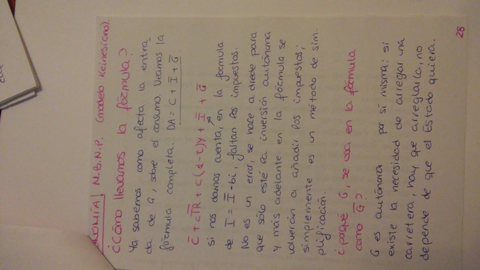 N.B.N.P. (modelo keinesiano).
¿Cómo llevamos la fórmula?
Ya sabemos como afecta la entra-
da de G, sobre el consumo. Veamos la
fórmula completa. DA = C + I + G
C + cTR + c(1-t)Y + I + G
si nos damos cuenta, en la formula
de I = I - bi, faltan los impuestos.
No es un error, se hace adrede para
que sólo esté la inversión autónoma
y más adelante en la fórmula se
volverán a añadir los impuestos;
simplemente es un método de sim-
plificación.
¿porqué G, se usa en la fórmula
como G?
G es autónoma por si misma: si
existe la necesidad de arreglar una
carretera, hay que arreglarla, no
depende de que el Estado quiera.
28